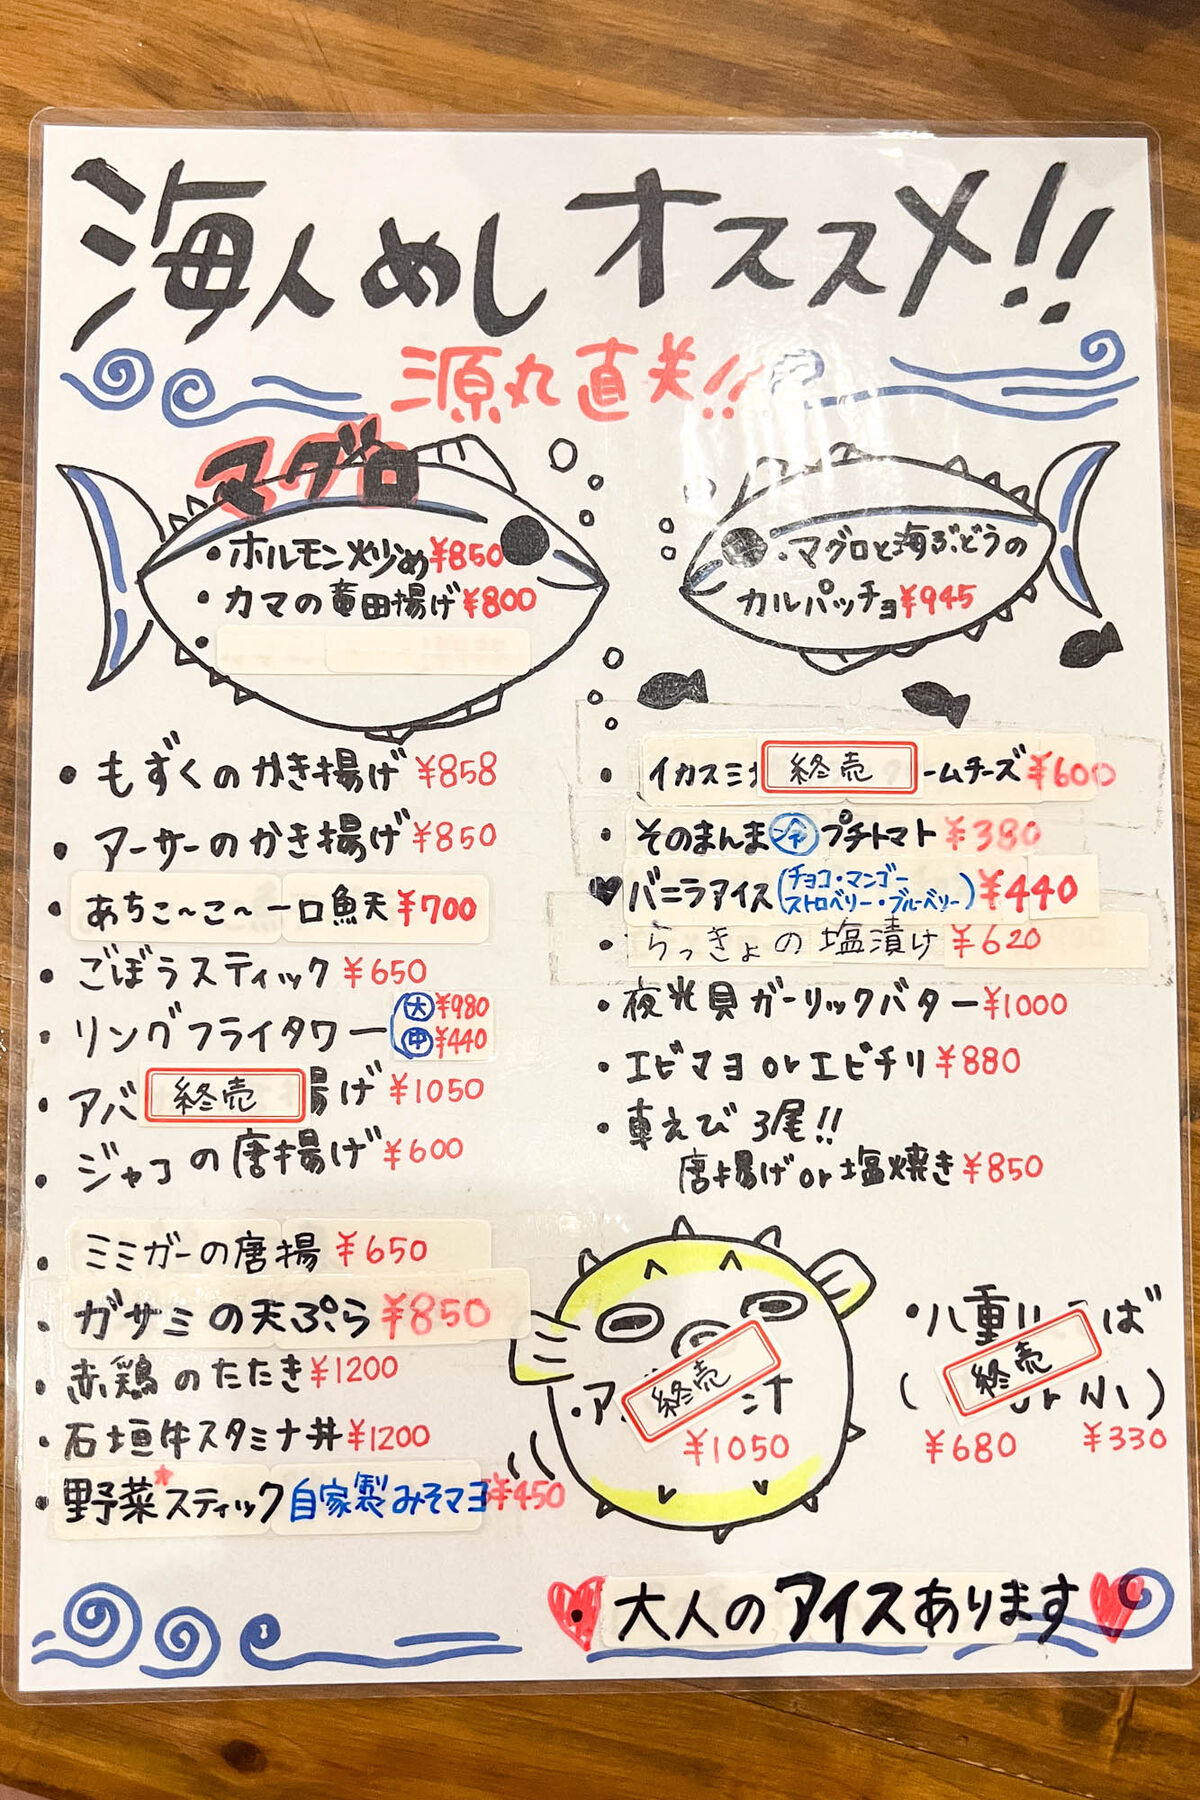 海人めしオススメ!!
源丸直送!!
マグロ
・ホルモン炒め¥850
・カマの竜田揚げ¥800
・マグロと海ぶどうの
カルパッチョ¥945
・もずくのかき揚げ¥858
・アーサーのかき揚げ¥850
・あちこ～こ～一口魚天¥700
・ごぼうスティック¥650
・リングフライタワー
大¥980
中¥440
・アバ 終売 揚げ¥1050
・ジャコの唐揚げ¥600
・ミミガーの唐揚¥650
・ガサミの天ぷら¥850
・赤鶏のたたき¥1200
・石垣牛スタミナ丼¥1200
・野菜スティック自家製みそマヨ¥450
・イカスミ 終売 ームチーズ¥600
・そのまんま冷プチトマト¥380
♥バニラアイス(チョコ・マンゴー
ストロベリー・ブルーベリー)¥440
・らっきょの塩漬け¥620
・夜光貝ガーリックバター¥1000
・エビマヨorエビチリ¥880
・車えび3尾!!
唐揚げor塩焼き¥850
・ア 終売 汁
¥1050
・八重山そば
( 終売 or小)
¥680 ¥330
・大人のアイスあります